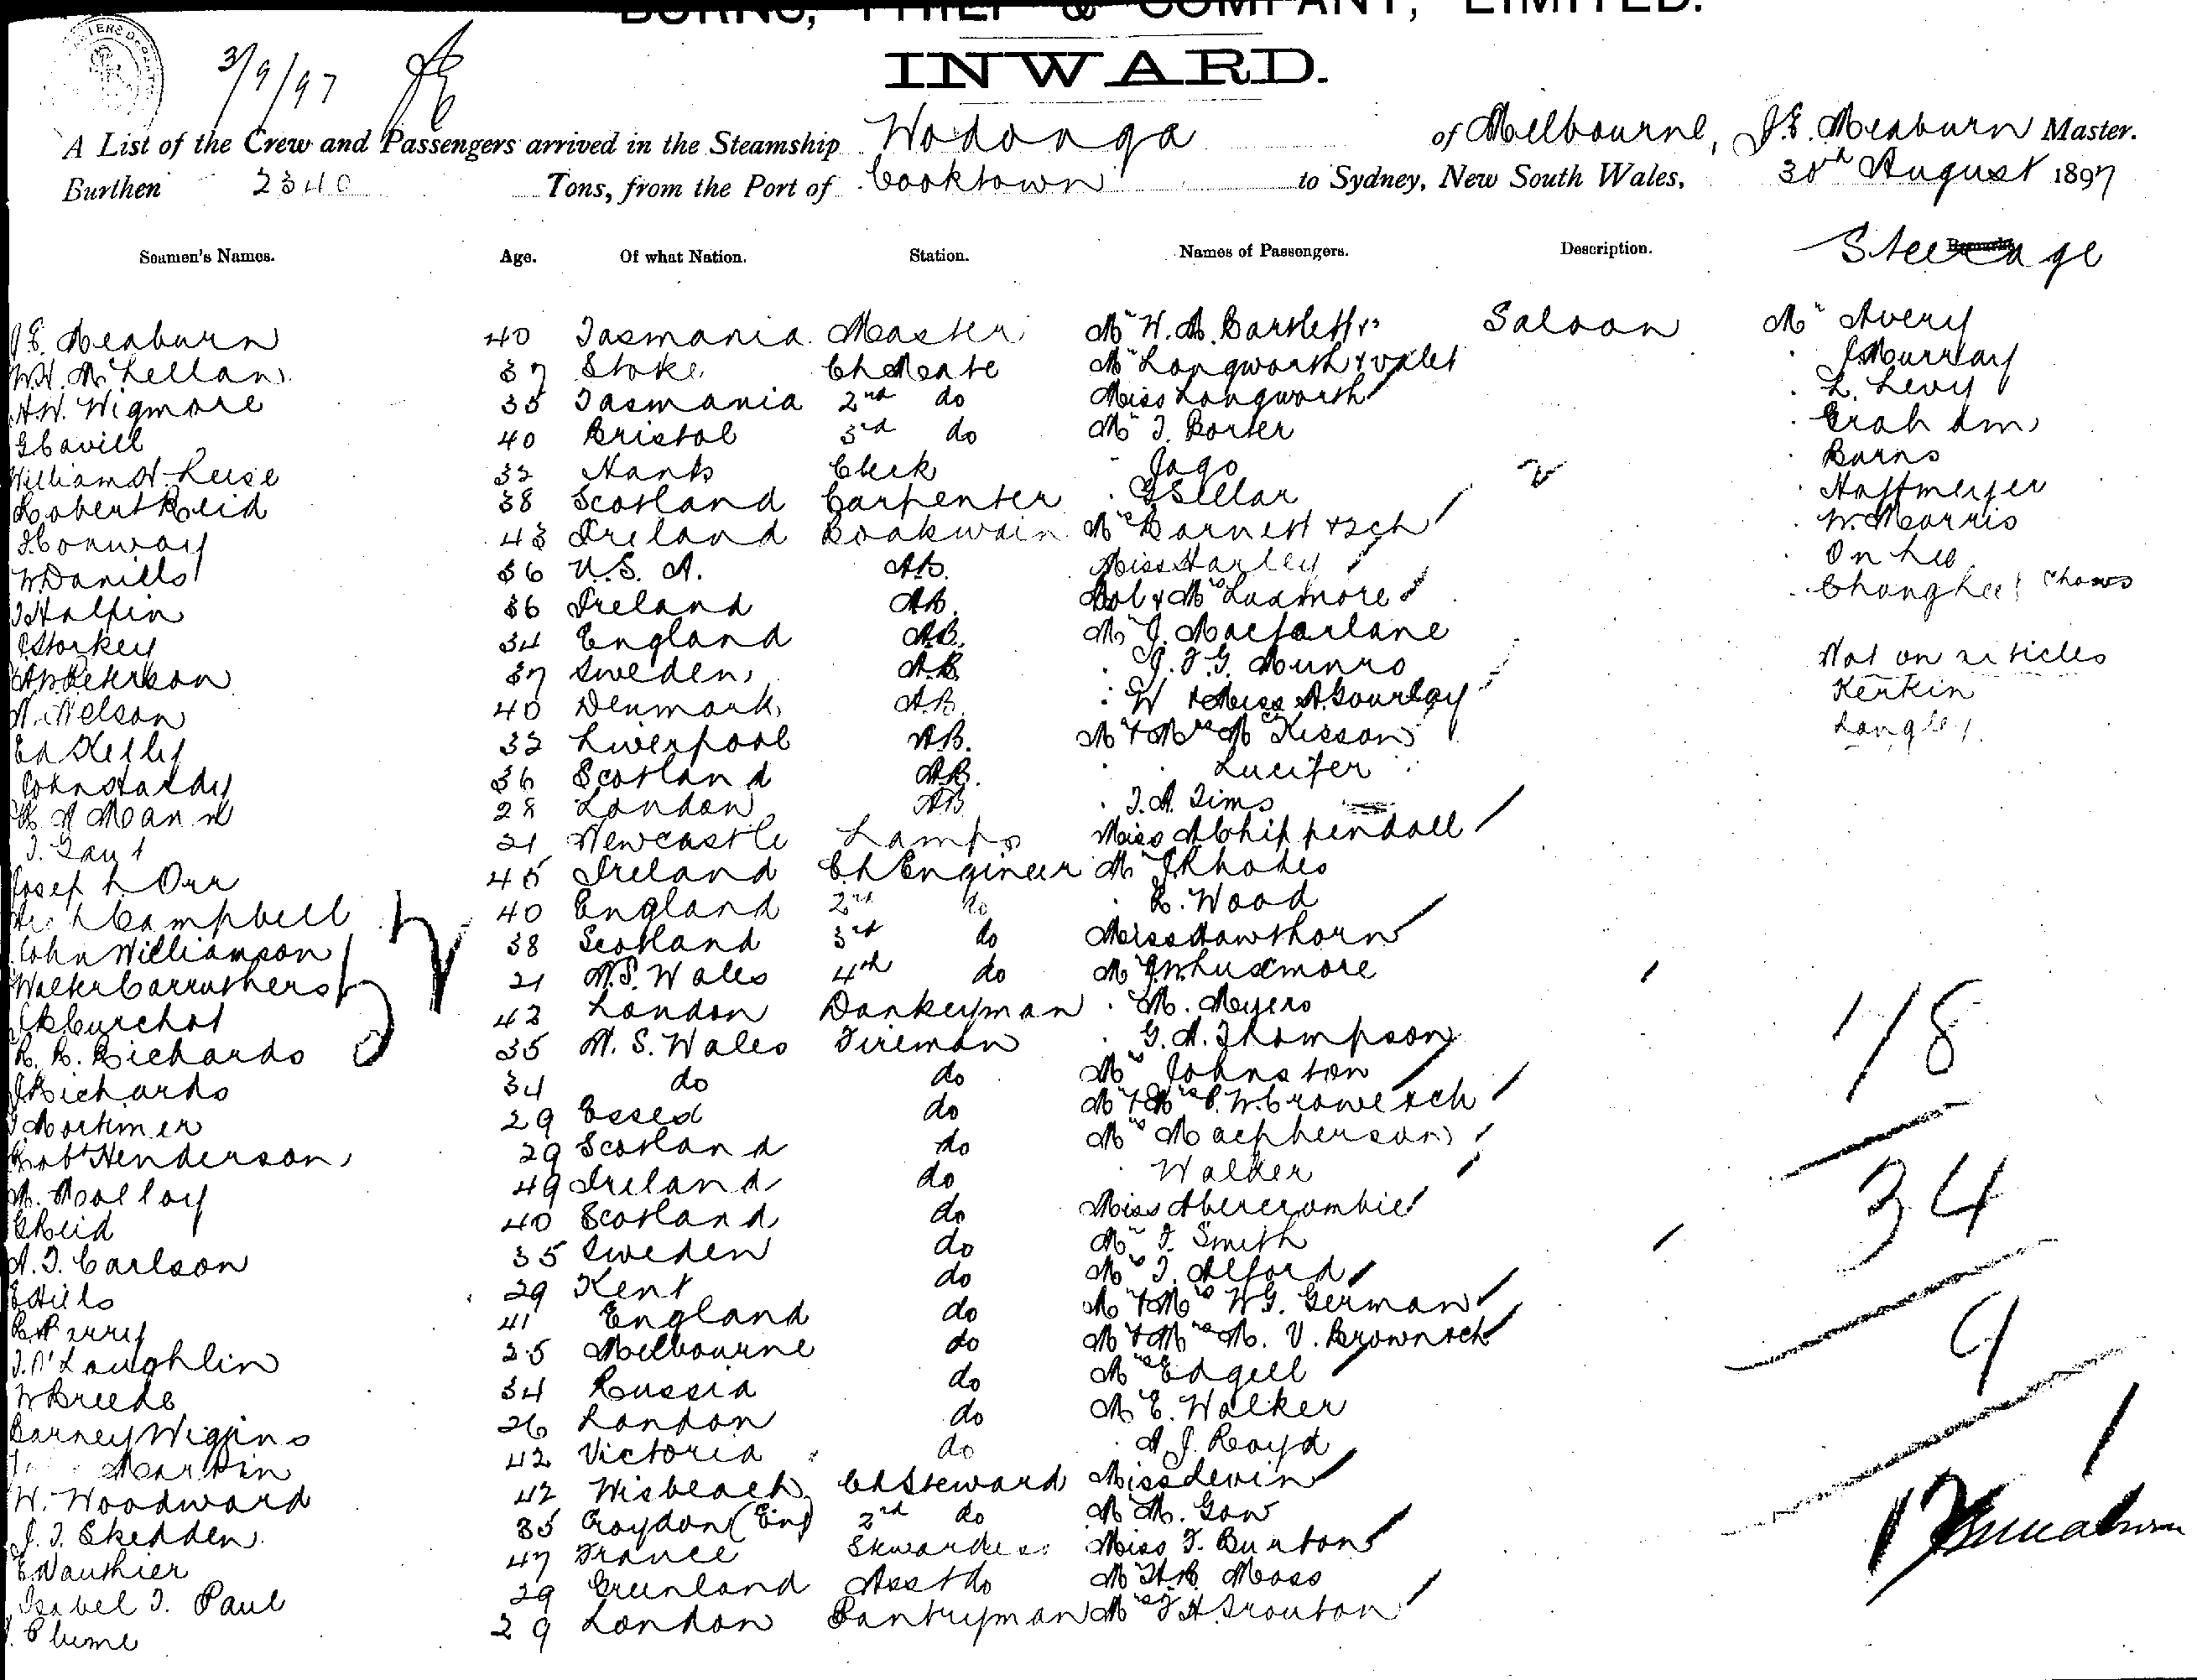 BURNS, PHILP & COMPANY, LIMITED.
INWARD.
3/9/97
A List of the Crew and Passengers arrived in the Steamship Wodonga of Melbourne, J.E. Meaburn Master.
Burthen 2340 Tons, from the Port of Cooktown to Sydney, New South Wales, 30th August 1897
Seamen's Names. Age. Of what Nation. Station. Names of Passengers. Description. Steerage
J.E. Meaburn 40 Tasmania Master Mr W. A. Bartlett Saloon Mr Avery
W.H. McLellan 37 Stoke Ch Mate Mr Longworth & valet J Murray
A.W. Wigmore 35 Tasmania 2nd do Miss Longworth L. Levy
G Cavill 40 Bristol 3rd do Mr T. Porter Graham
William H. Luse 32 Hants Clerk " Jago 2 Burns
Robert Reid 38 Scotland Carpenter " G Sellar Hoffmeyer
J Conway 43 Ireland Boatswain Mrs Barnett & 2 ch W. Morris
W Daniels 36 U.S. A. A.B. Miss Harley On Lee
J Halpin 36 Ireland A.B. Col & Mrs Luxmore Chong Lee
C Storkey 34 England A.B. Mr J. Macfarlane
A Peterson 37 Sweden A.B. " J. T. G. Munro Not on articles
N. Nelson 40 Denmark A.B. " W & Miss A. Gourlay Kerkin
Ed Kelly 32 Liverpool A.B. Mr & Mrs McKisson Langley
John Hardy 36 Scotland A.B. " " Lucifer
A Mann 28 London A.B. " T. A. Sims
T. Gant 21 Newcastle Lamps Miss A Chippendall
Joseph Orr 45 Ireland Ch Engineer Mr J Rhodes
Campbell 40 England 2nd do " R. Wood
John Williamson 38 Scotland 3rd do Miss Hawthorn
Walter Carruthers 21 N.S. Wales 4th do Mr J.W. Luxmore
Churchol 42 London Donkeyman " M. Myers
R. R. Richards 35 N. S. Wales Fireman " G. A. Thompson 1/8
J Richards 34 do do Mrs Johnston
T Mortimer 29 Essex do Mr & Mrs P. W. Crowe & ch
Robt Henderson 29 Scotland do Mrs Macpherson
M. Molloy 49 Ireland do " Walker 34
G Reid 40 Scotland do Miss Abercrombie
A. T. Carlson 35 Sweden do Mr F. Smith
E Hills 29 Kent do Mrs T. Alford
R Perry 41 England do Mr & Mrs W G. German 9
J. O'Laughlin 25 Melbourne do Mr & Mrs M. V. Brown & ch
W Breede 34 Russia do Mrs Edgell
Barney Wiggins 26 London do Mr E. Walker 1
Martin 42 Victoria do " A. J. Boyd
W. Woodward 42 Wisbeach Ch Steward Miss Levin
J. T. Skedden 35 Croydon (Eng) 2nd do Mr M. Gow
E Wauthier 47 France Stewardess Miss F. Burton
Isabel T. Paul 29 Greenland Asst do Mr H. B. Moss
Plume 29 London Pantryman Mrs F H Trouton